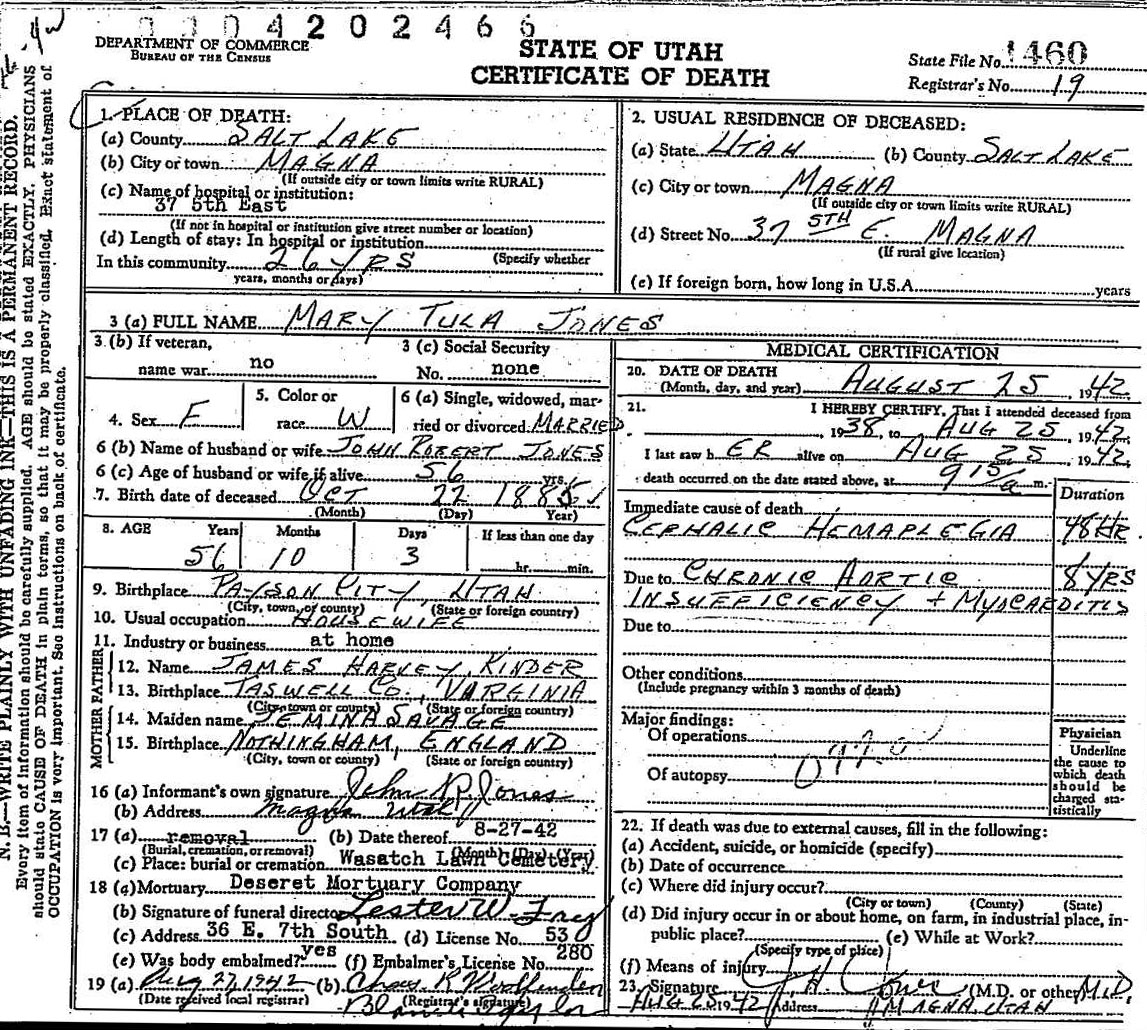 0004202466
DEPARTMENT OF COMMERCE
BUREAU OF THE CENSUS
STATE OF UTAH
CERTIFICATE OF DEATH
State File No. 1460
Registrar's No. 19
N. B.—WRITE PLAINLY WITH UNFADING INK—THIS IS A PERMANENT RECORD.
Every item of information should be carefully supplied. AGE should be stated EXACTLY. PHYSICIANS
should state CAUSE OF DEATH in plain terms, so that it may be properly classified. Exact statement of
OCCUPATION is very important. See instructions on back of certificate.
1. PLACE OF DEATH:
(a) County SALT LAKE
(b) City or town MAGNA
(If outside city or town limits write RURAL)
(c) Name of hospital or institution:
37 5th East
(If not in hospital or institution give street number or location)
(d) Length of stay: In hospital or institution
(Specify whether
In this community 26 YRS
years, months or days)
2. USUAL RESIDENCE OF DECEASED:
(a) State UTAH (b) County SALT LAKE
(c) City or town MAGNA
(If outside city or town limits write RURAL)
(d) Street No. 37 5TH E. MAGNA
(If rural give location)
(e) If foreign born, how long in U.S.A. years
3 (a) FULL NAME MARY TULA JONES
3 (b) If veteran,
name war no
3 (c) Social Security
No. none
4. Sex F
5. Color or
race W
6 (a) Single, widowed, mar-
ried or divorced MARRIED
6 (b) Name of husband or wife JOHN ROBERT JONES
6 (c) Age of husband or wife if alive 56 yrs.
7. Birth date of deceased OCT 22 1885
(Month) (Day) Year)
8. AGE Years Months Days If less than one day
56 10 3 hr. min.
9. Birthplace PAYSON CITY, UTAH
(City, town, or county) (State or foreign country)
10. Usual occupation HOUSEWIFE
11. Industry or business at home
FATHER
12. Name JAMES HARVEY KINDER
13. Birthplace TASWELL CO., VARGINIA
(City, town or county) (State or foreign country)
MOTHER
14. Maiden name JEMINA SAVAGE
15. Birthplace NOTHINGHAM, ENGLAND
(City, town or county) (State or foreign country)
16 (a) Informant's own signature John R Jones
(b) Address Magna Utah
17 (a) removal (b) Date thereof 8-27-42
(Burial, cremation, or removal) (Month) (Day) (Yr)
(c) Place: burial or cremation Wasatch Lawn Cemetery
18 (a) Mortuary Deseret Mortuary Company
(b) Signature of funeral director Lester W.
(c) Address 36 E. 7th South (d) License No. 53
(e) Was body embalmed? yes (f) Embalmer's License No. 280
19 (a) Aug 27, 1942 (b) Chas. K
(Date received local registrar) (Registrar's signature)
MEDICAL CERTIFICATION
20. DATE OF DEATH
(Month, day, and year) AUGUST 25 1942
21. I HEREBY CERTIFY, That i attended deceased from
1938, to AUG 25 1942
I last saw h ER alive on AUG 25 1942
death occurred on the date stated above, at 915 a m.
Duration
Immediate cause of death
CEPHALIC HEMAPLEGIA 48 HR
Due to CHRONIC AORTIC 8 YRS
INSUFFICIENCY + MYOCARDITIS
Due to
Other conditions
(Include pregnancy within 3 months of death)
Major findings:
Of operations
Of autopsy
Physician
Underline
the cause to
which death
should be
charged sta-
tistically
22. If death was due to external causes, fill in the following:
(a) Accident, suicide, or homicide (specify)
(b) Date of occurrence
(c) Where did injury occur?
(City or town) (County) (State)
(d) Did injury occur in or about home, on farm, in industrial place, in-
public place? (e) While at Work?
(Specify type of place)
(f) Means of injury
23. Signature (M.D. or other) M.D.
AUG 25 1942 Address MAGNA, UTAH